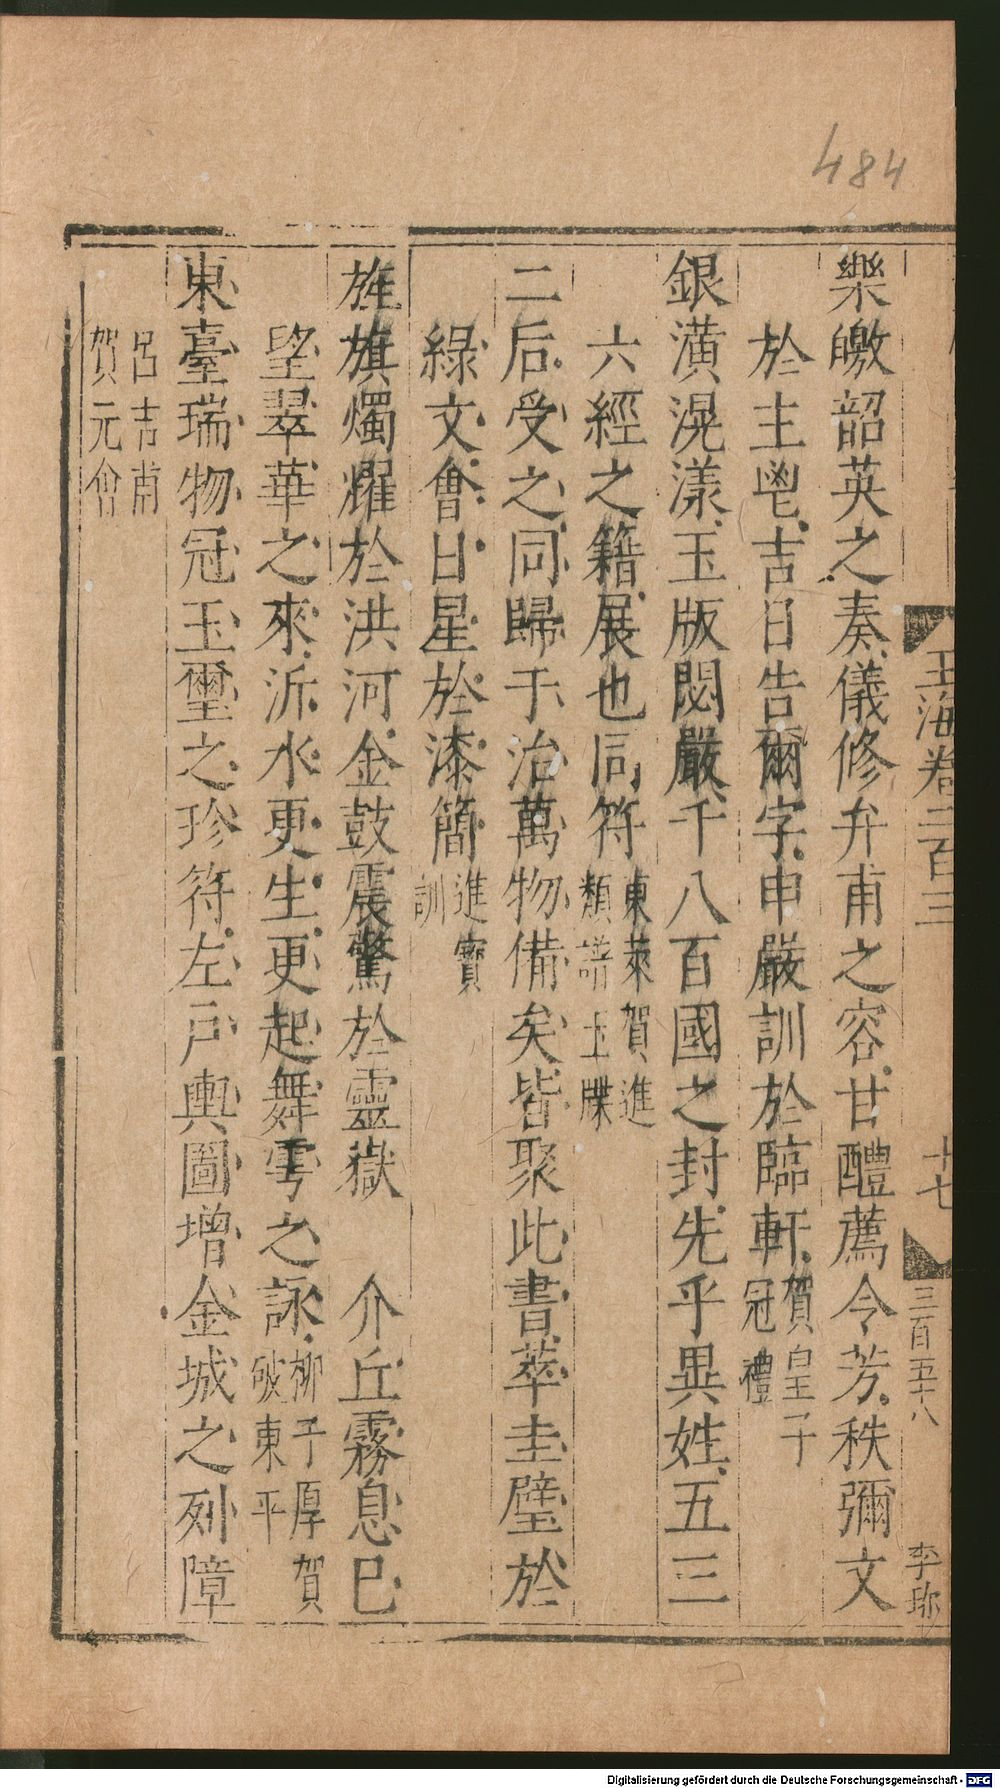 484
玉海卷二百三
十七
三百五十八
李
樂皦韶英之奏儀修弁甫之容甘醴薦令芳秩彌文
於主鬯吉日告爾字申嚴訓於臨軒賀皇子冠禮
銀潢滉漾玉版閟嚴千八百國之封先乎異姓五三
六經之籍展也同符東萊賀進類譜玉牒
二后受之同歸于治萬物備矣皆聚此書萃圭璧於
綠文會日星於漆簡進寶訓
旌旗燭燿於洪河金鼓震驚於靈嶽 介丘霧息已
望翠華之來泝水更生更起舞雩之詠柳子厚賀破東平
東臺瑞物冠玉璽之珍符左戶輿圖增金城之列障
呂吉甫賀元會
Digitalisierung gefördert durch die Deutsche Forschungsgemeinschaft - DFG